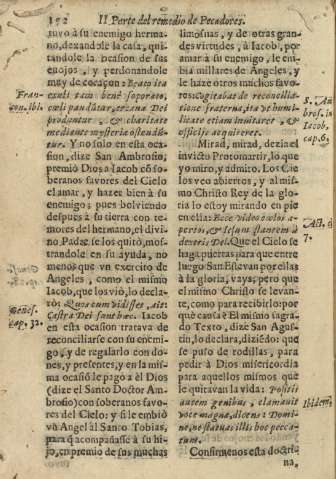 152 II. Parte del remedio de Pecadores.
tuvo à su enemigo herma-
no, dexandole la casa, qui-
tandole la ocasion de sus
enojos, y perdonandole
muy de coraçon:
exuli
Fran-
con. ibi.
coeli pandūtur, arcana Dei
produntur, & charitate
mediante mysteria ostendū-
tur. Y no solo en esta oca-
sion, dize San Ambrosio,
premiò Dios à Iacob cō so-
beranos favores del Cielo
el amar, y hazer bien à su
enemigo; pues bolviendo
despues à su tierra con te-
mores del hermano, el divi-
no Padre se los quitò, mos-
trandole en su ayuda, no
menos que vn exercito de
Angeles, como el mismo
Iacob, que los viò, lo decla-
rò: Quos cum vidisset, ait:
Castra Dei sunt hæc. Iacob
Genes.
cap. 32.
en esta ocasion tratava de
reconciliarse con su enemi-
go, y de regalarlo con do-
nes, y presentes, y en la mis-
ma ocasiō le pagò à èl Dios
(dize el Santo Doctor Am-
brosio) con soberanos favo-
res del Cielo: y si le embiò
vn Angel al Santo Tobias,
para q̄ acompañasse à su hi-
jo, en premio de sus muchas
limosnas, y de otras gran-
des virtudes, à Iacob, por
amar à su enemigo, le em-
bia millares de Angeles, y
le haze otros muchos favo-
res:
ratione fraterna, ita & humi-
licate etiam imitares, &
officijs acquireret.
S. Am
bros. in
Iacob,
cap. 6.
Mirad, mirad, dezia el
invicto Protomartir, lo que
yo miro, y admiro. Los Cie-
los veo abiertos, y al mis-
mo Christo Rey de la glo-
ria lo estoy mirando en pie
en ella: Ecce video cœlos a-
pertos, & Iesum stantem à
dextris Dei. Que el Cielo se
Act. c.
7.
haga puertas para que entre
luego San Estevan por ellas
à la gloria, vaya; pero que
el mismo Christo se levan-
te, como para recibirlo: por
què causa? El mismo sagra-
do Texto, dize San Agus-
tin, lo declara, diziēdo: que
se puso de rodillas, para
pedir à Dios misericordia
para aquellos mismos que
le quitavan la vida: Positis
autem genibus, clamavit
voce magna, dicens: Domi-
ne, ne statuas illis hoc pecca-
tum.
Ibidem.
Confirmemos esta doctri-
na,